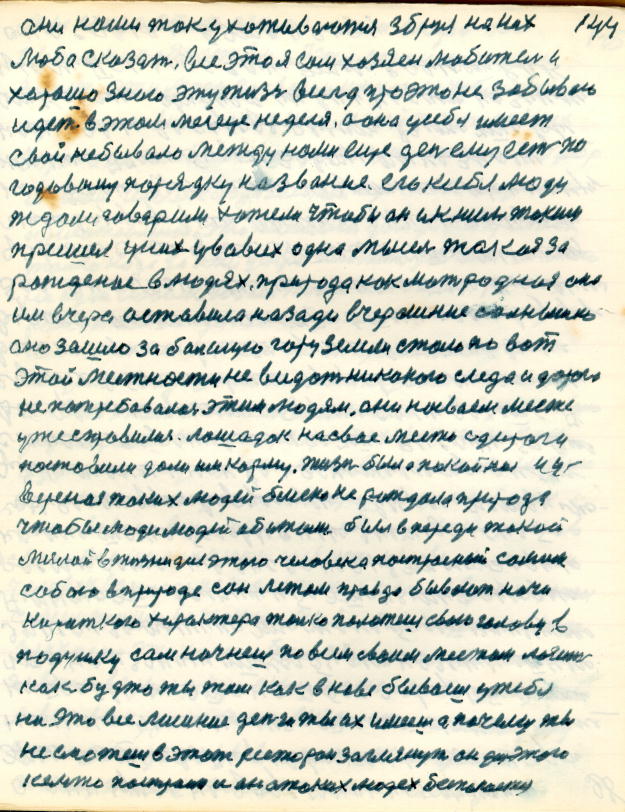 они нами так ухаживаются збруя на них 144
люба сказат. все это я сам хозяен любител и
хорошо знаю эту жизь всегда про это не забываю
идет в этом месеце неделя, а она у себя имеет
свой небывало между нами еще ден ему ест по
годовому порядку название. его к себе люди
ждали говорили хотели чтобы он и к ним таким
пришел у них у всех одна мысел такая за
рождение в людях, природа как мат родная она
им вчера оставила назади вчерашние солнышко
оно зашло за балшую гору земли стало по вот
этой местности не видат никакого следа и дорога
не потребавалас этим людям. они на своем месте
уже ставилис. лошадок на свае место с дороги
поставили дали им корму. жизн была покойная и у
вереная таких людей близко не рождала природа
чтобы люди людей обижали была впереди такой
милой в жизни для этого человека построеный самим
собою в природе сон летом правда бывают ночи
кароткого характера толко положеш свою голову в
подушку сам начнеш по всем своим местам лазит
как будто ты там как в нове бываеш у тебя
на это все лишние денги ты их имееш а почему ты
не сможеш в этот ресторан заглянут он для этого
кем то построен и он таких людех